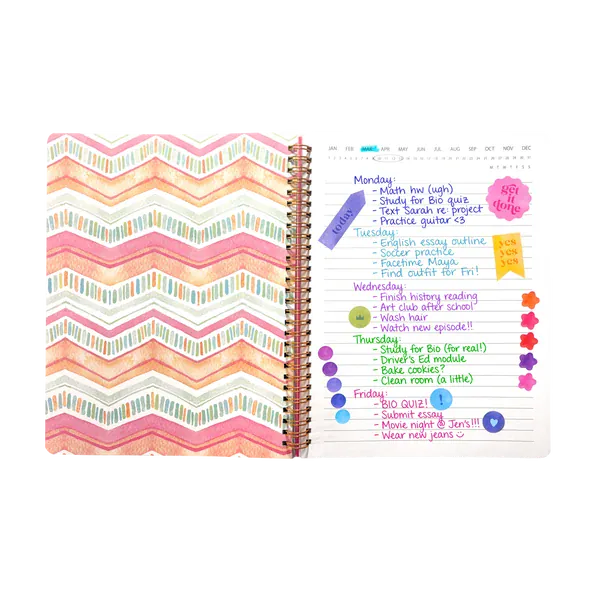 JAN FEB MAR APR MAY JUN JUL AUG SEP OCT NOV DEC
M T W T F S S
Monday:
- Math hw (ugh)
- Study for Bio quiz
- Text Sarah re: project
- Practice guitar <3
today
get it done
Tuesday:
- English essay outline
- Soccer practice
- Facetime Maya
- Find outfit for Fri!
yes
yes
yes
Wednesday:
- Finish history reading
- Art club after school
- Wash hair
- Watch new episode!!
Thursday:
- Study for Bio (for real!)
- Driver's Ed module
- Bake cookies?
- Clean room (a little)
Friday:
- BIO QUIZ!
!
- Submit essay
- Movie night @ Jen's!!!
- Wear new jeans ☺